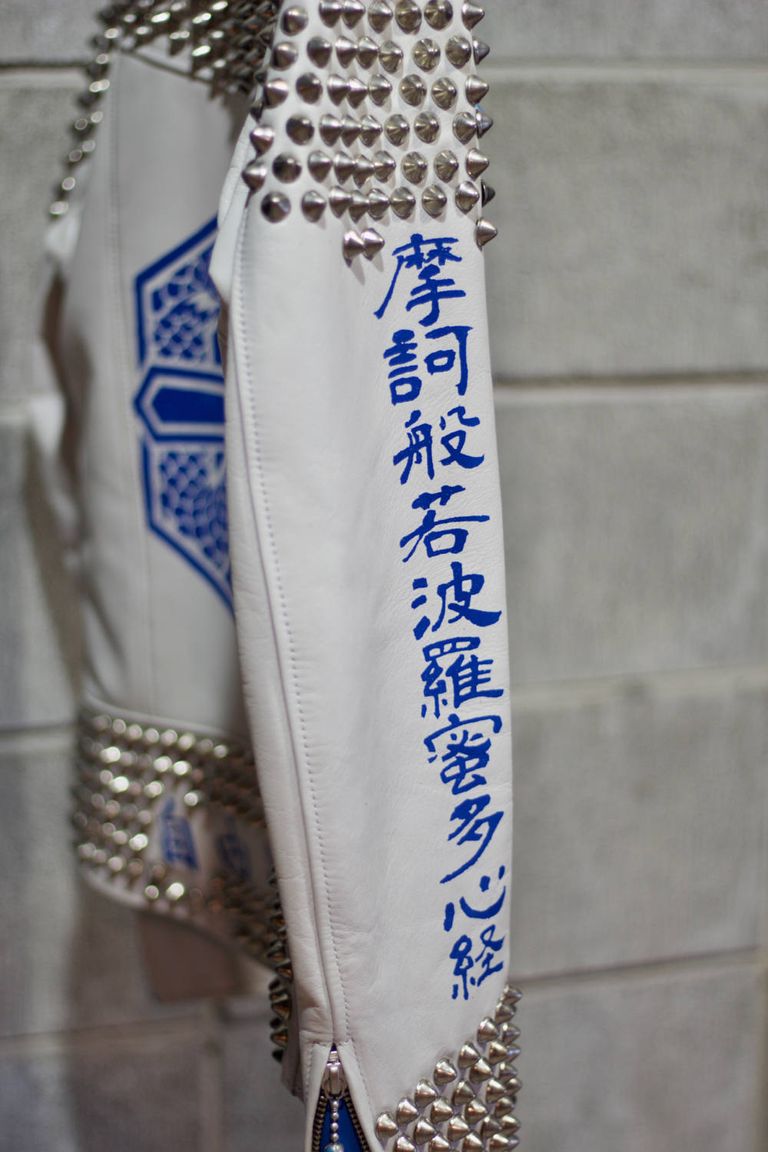 摩訶般若波羅蜜多心経